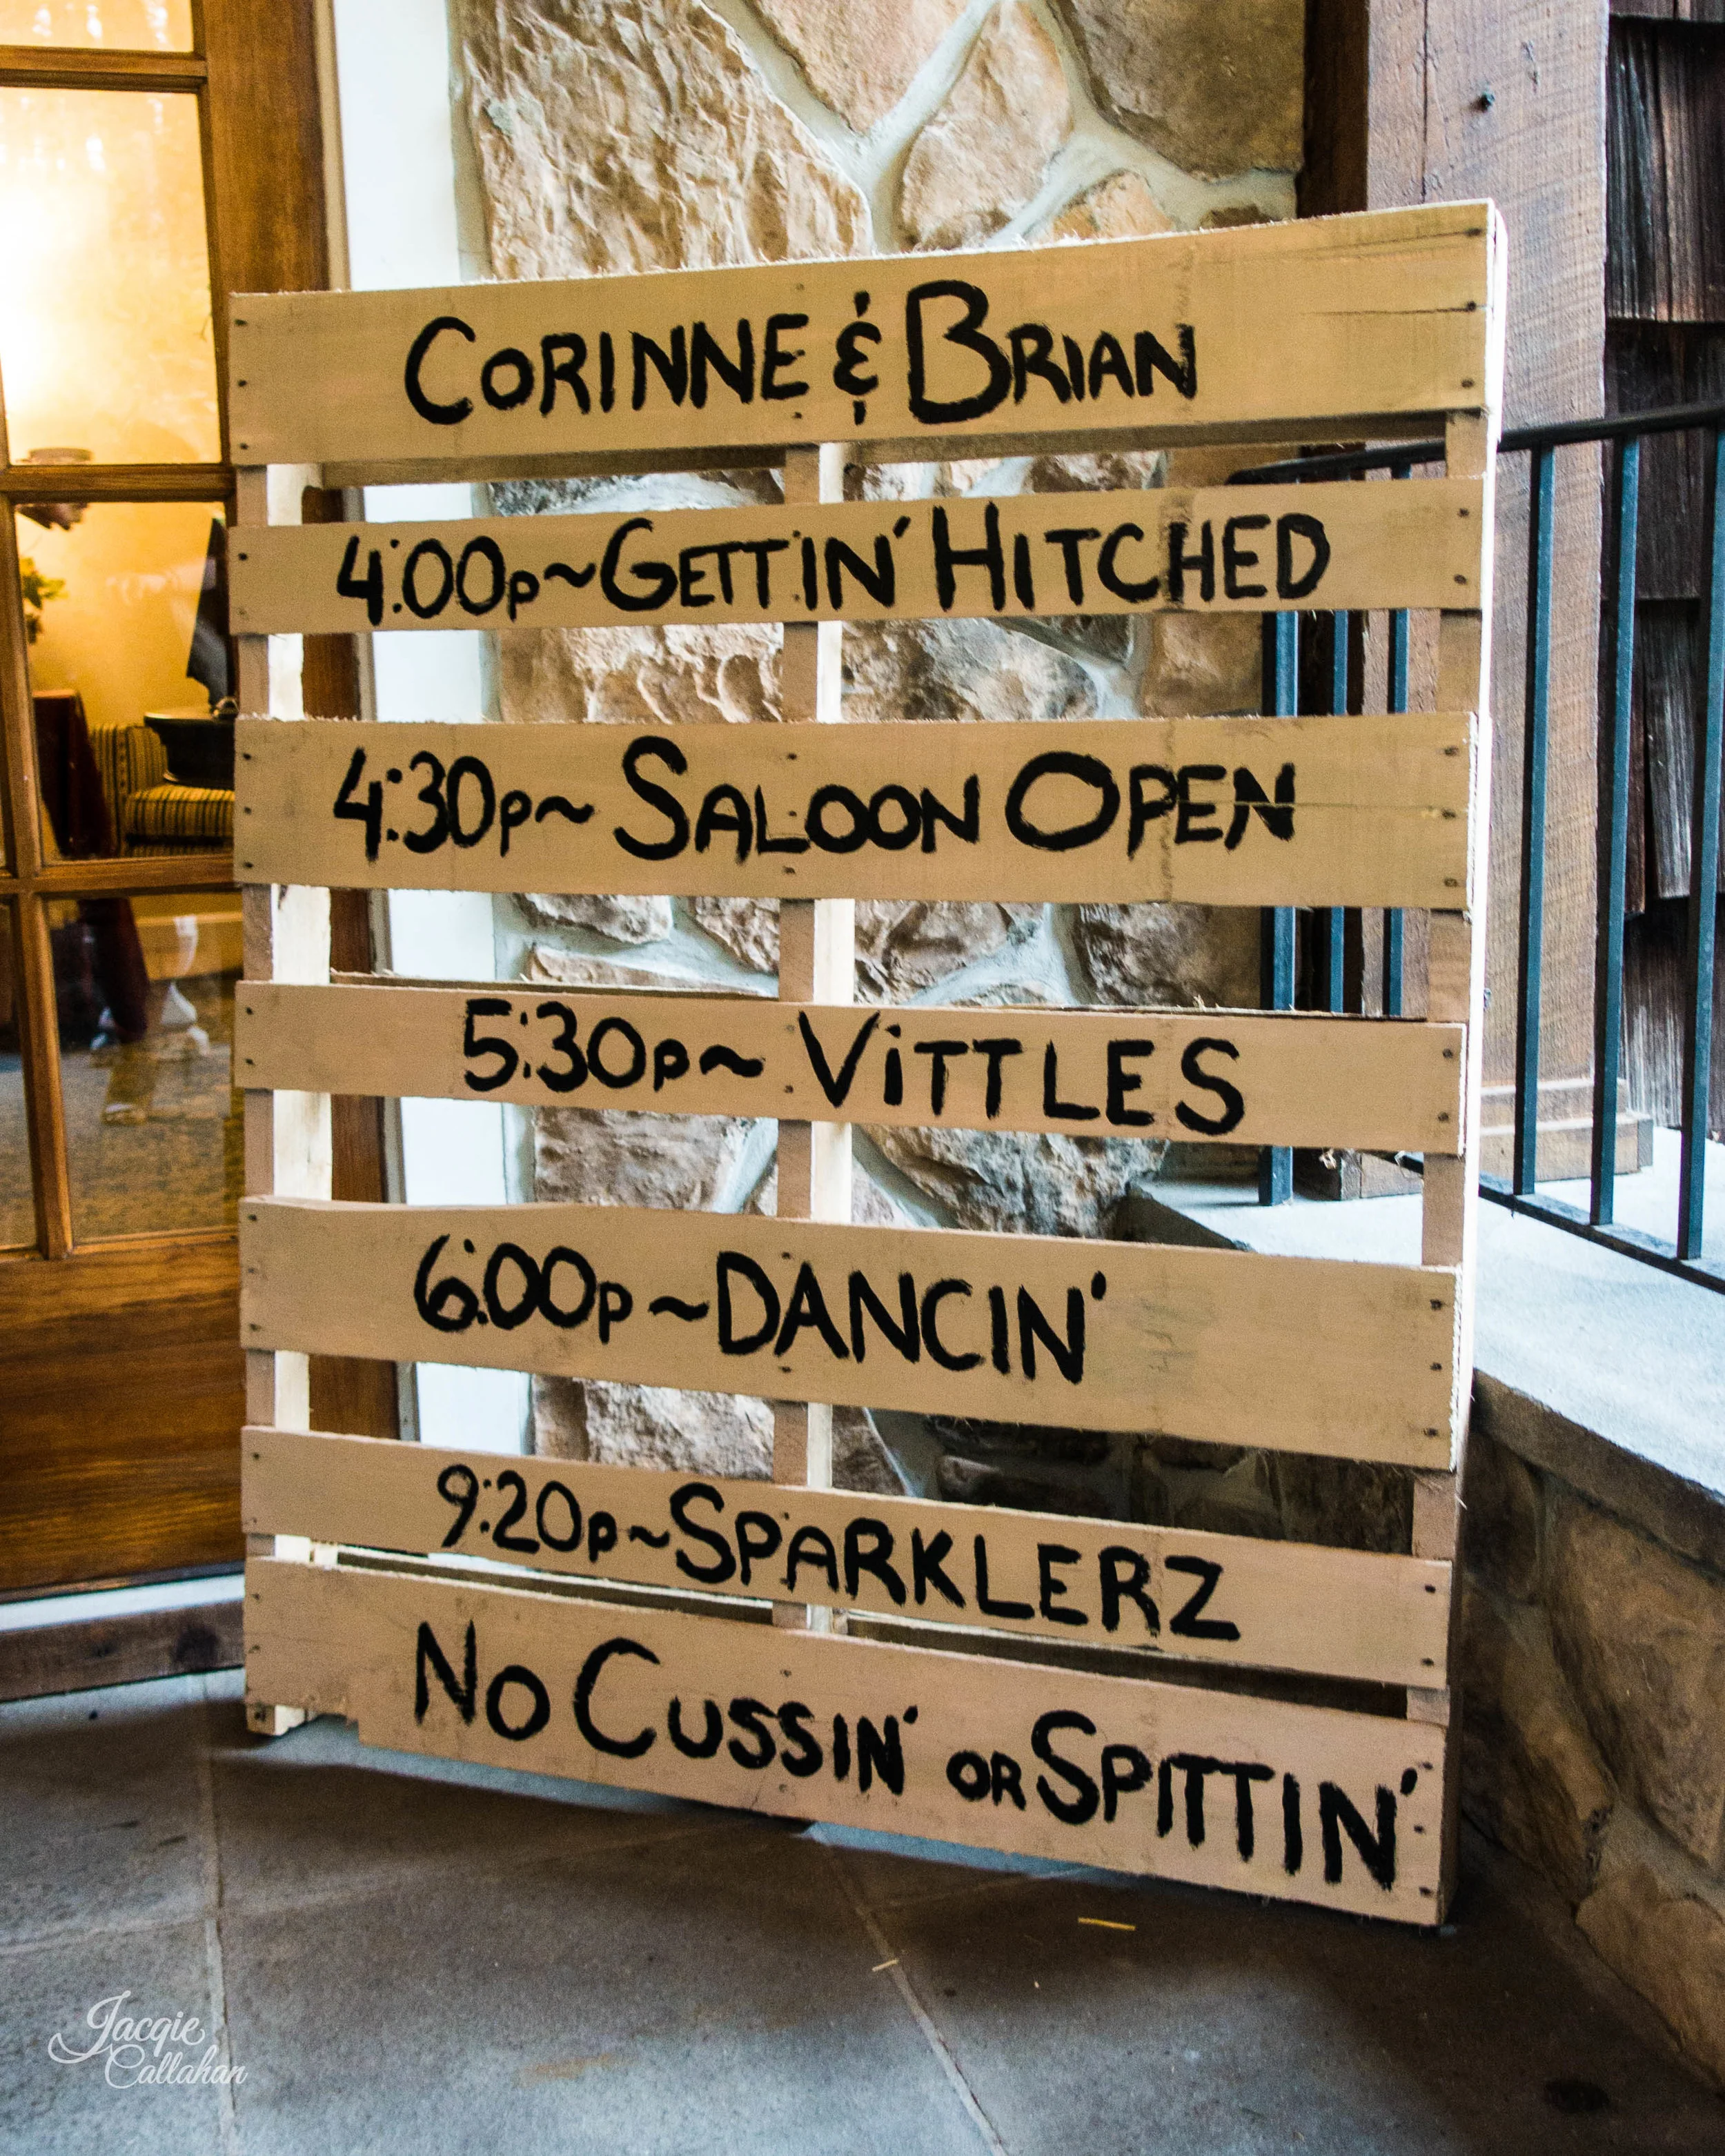 CORINNE & BRIAN
4:00p~GETTIN' HITCHED
4:30p~ SALOON OPEN
5:30p~ ViTTLES
6:00p~DANCIN'
9:20p~SPARKLERZ
NO CUSSIN' OR SPITTIN'
Jacqie
Callahan